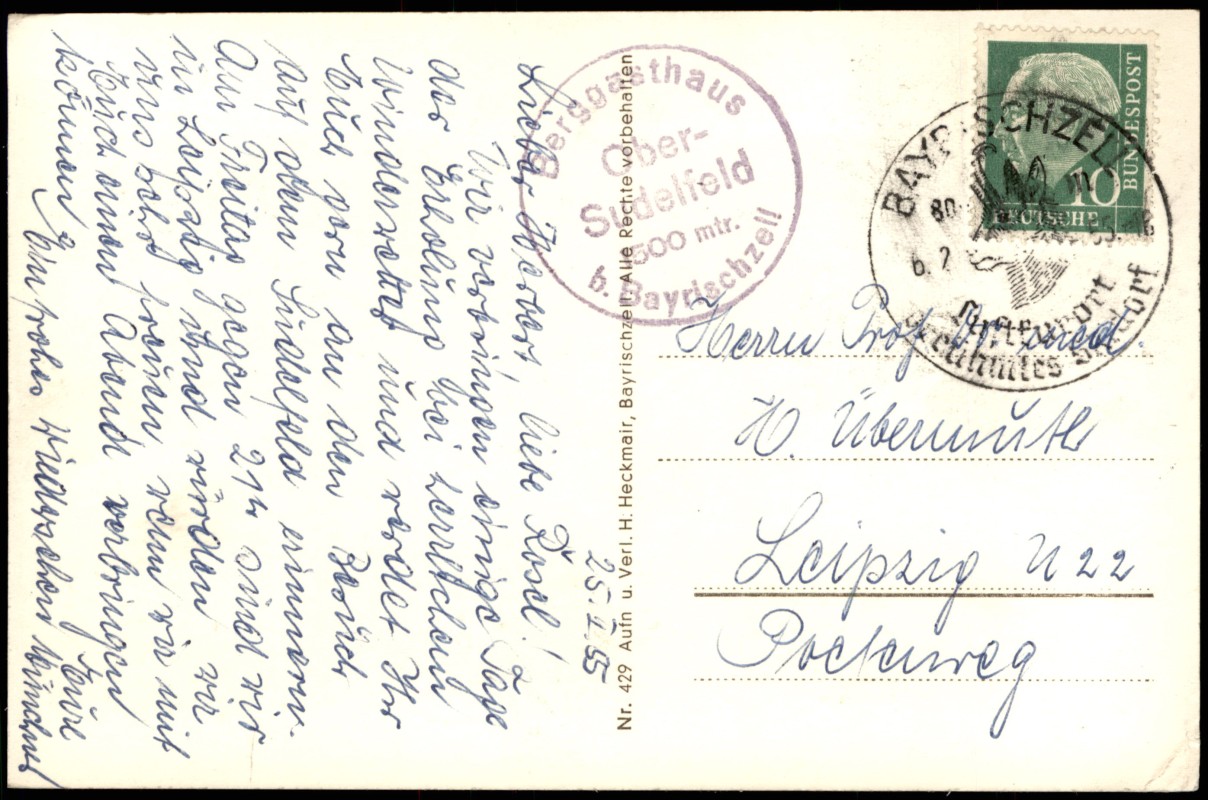 25. I. 55
Lieber Herbert, liebe Rosel!
Wir verbringen einige Tage
der Erholung bei herrlichem
Winterwetter und werdet Ihr
Euch gern an den Besuch
auf dem Sudelfeld erinnern.
Am Freitag gegen 21h sind wir
in Leipzig und würden wir
uns sehr freuen wenn wir mit
Euch einen Abend verbringen
können. Ein frohes Wiedersehen Eure
Berggasthaus
Ober-
Sudelfeld
1500 mtr.
b. Bayrischzell
Nr. 429 Aufn u. Verl. H. Heckmair, Bayrischzell Alle Rechte vorbehalten
DEUTSCHE
BUNDESPOST
10
BAYRISCHZELL
80
m
6. 2
55
Luftkurort
berühmtes Skidorf
Herrn Prof. Dr. med.
H. Übermuth
Leipzig N 22
Poetenweg